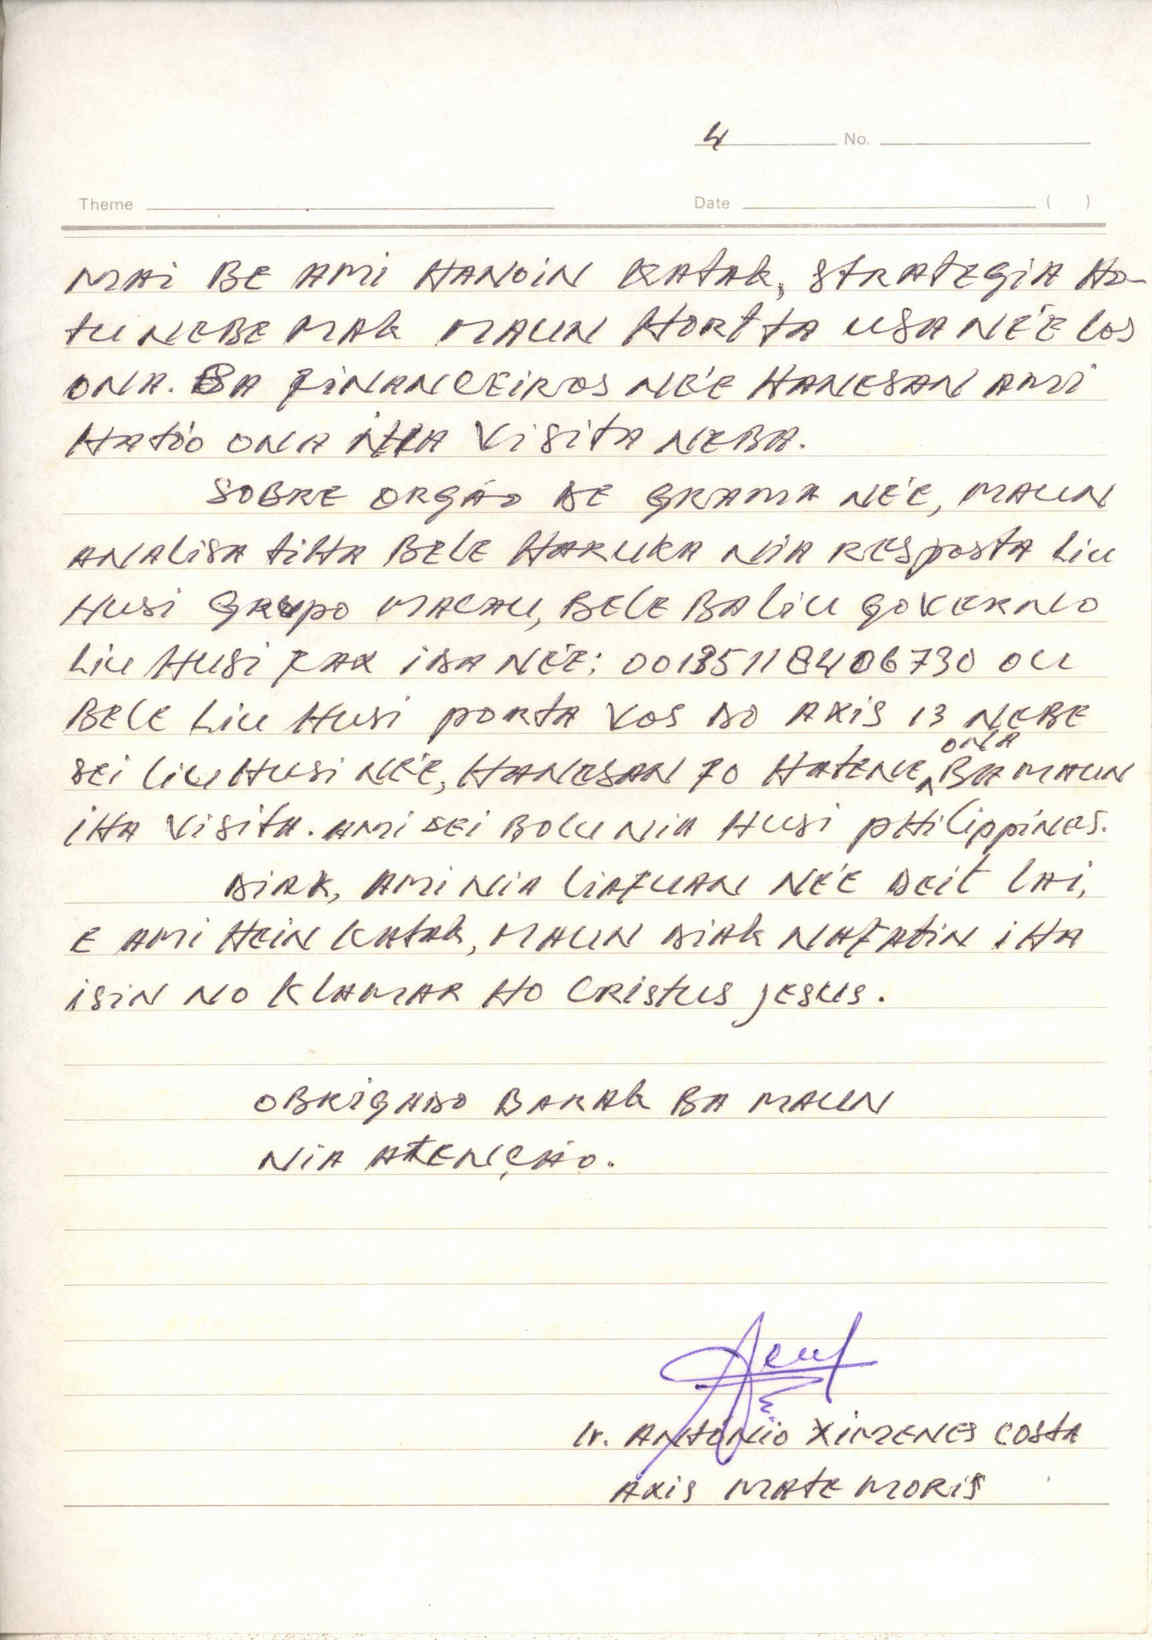 4 No.
Theme Date ( )
MAI BE AMI HANOIN KATAK, STRATEGIA HO-
TU NEBE MAK MAUN HORTTA USA NE'E LOS
ONA. BA FINANCEIROS NE'E HANESAN AMI
HATO'O ONA IHA VISITA NEBA.
SOBRE ORGÃO DE GRAMA NE'E, MAUN
ANALISA TIHA BELE HARUKA NIA RESPOSTA LIU
HUSI GRUPO MACAU, BELE BA LIU GOVERNO
LIU HUSI FAX IDA NE'E: 00135118406730 OU
BELE LIU HUSI PORTA VOS DO AXIS 13 NEBE
SEI LIU HUSI NE'E, HANESAN FO HATENE ONA BA MAUN
IHA VISITA. AMI SEI BOLU NIA HUSI PHILIPPINES.
DIAK, AMI NIA LIAFUAN NE'E DEIT LAI,
E AMI HEIN KATAK, MAUN DIAK NAFATIN IHA
ISIN NO KLAMAR HO CRISTUS JESUS.
OBRIGADO BARAK BA MAUN
NIA ATENÇÃO.
Ir. ANTÓNIO XIMENES COSTA
AXIS MATE MORIS